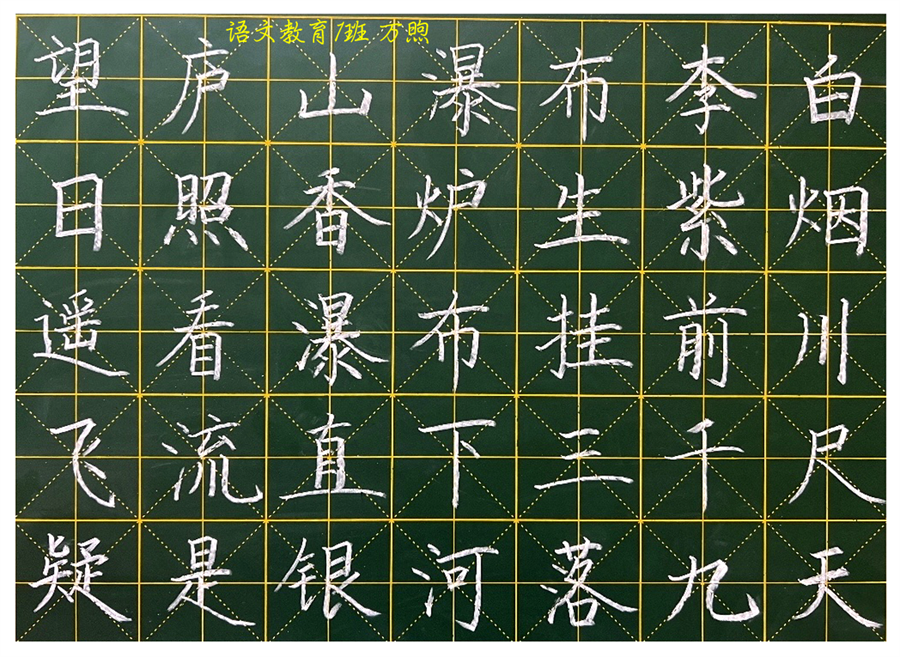 语文教育1班 方煦
望庐山瀑布李白
日照香炉生紫烟
遥看瀑布挂前川
飞流直下三千尺
疑是银河落九天